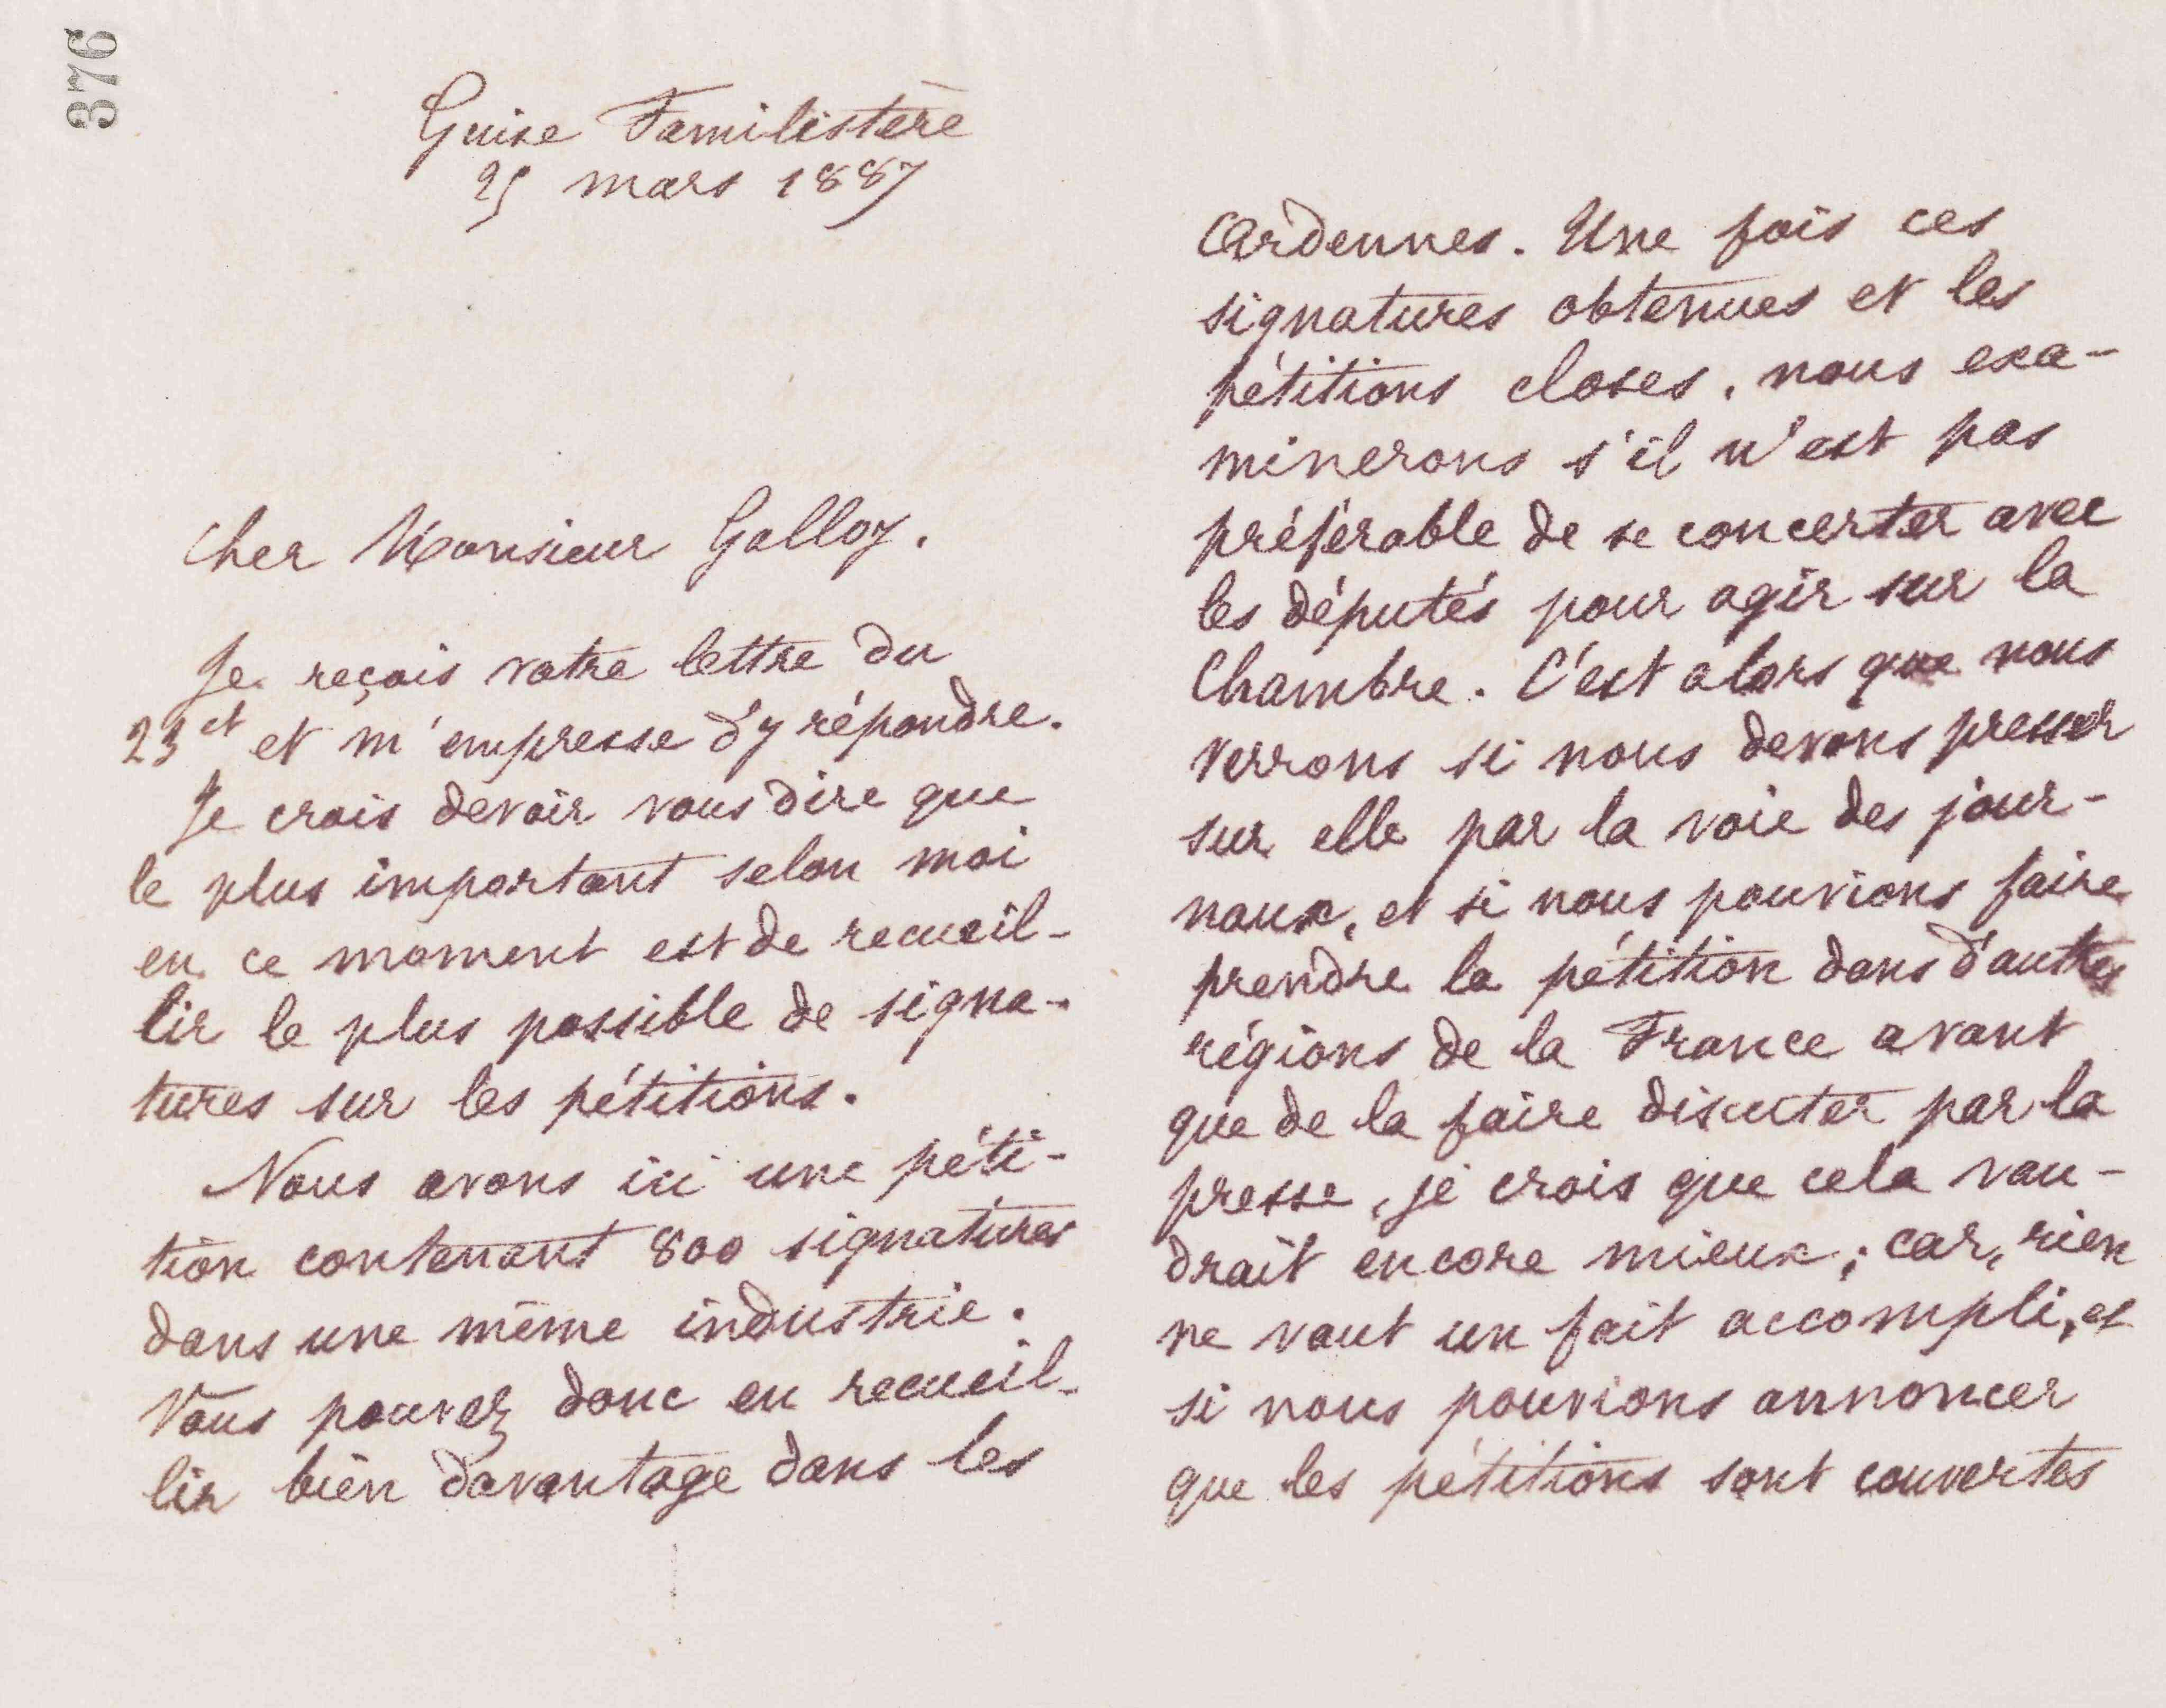 376
Guise Familistère
25 mars 1887
Cher Monsieur Galloy.
Je reçois votre lettre du
23 ct et m'empresse d'y répondre.
Je crois devoir vous dire que
le plus important selon moi
en ce moment est de recueil-
lir le plus possible de signa-
tures sur les pétitions.
Nous avons ici une péti-
tion contenant 800 signatures
dans une même industrie.
Vous pouvez donc en recueil-
lir bien davantage dans les
Ardennes. Une fois ces
signatures obtenues et les
pétitions closes, nous exa-
minerons s'il n'est pas
préférable de se concerter avec
les députés pour agir sur la
Chambre. C'est alors que nous
verrons si nous devons presser
sur elle par la voie des jour-
naux, et si nous pouvions faire
prendre la pétition dans d'autres
régions de la France avant
que de la faire discuter par la
presse, je crois que cela vau-
drait encore mieux; car, rien
ne vaut un fait accompli, et
si nous pouvions annoncer
que les pétitions sont couvertes